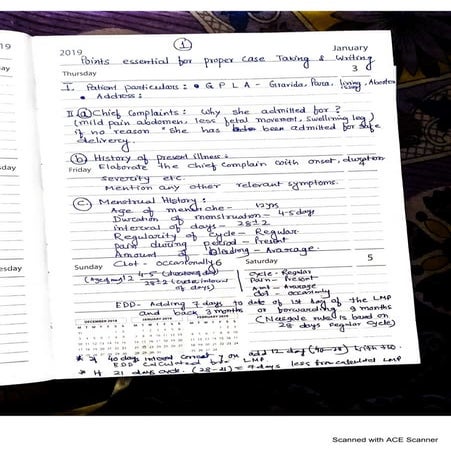 19
2019
①
January
Points essential for proper Case Taking & Writing
Thursday
3
I. Patient particulars : • G P L A - Gravida, Para, living, Abortion
• Address :
II (a) Chief Complaints : Why she admitted for ?
(mild pain abdomen, less fetal movement, Swelling leg)
if no reason "She has been admitted for safe
delivery.
(b) History of present illness :
Friday
4
Elaborate the chief Complain with onset, duration
severity etc.
Mention any other relevant symptoms.
(c) Menstrual History :
Age of menarche - 12 yrs
Duration of menstruation - 4-5 days
interval of days - 28±2
Regularity of Cycle - Regular
pain during period - Present
Amount of Bleeding - Avarage.
Clot - occasionally
Sunday
6
Saturday
5
4-5 (duration of days)
28±2 (cycle interval of days)
Cycle - Regular
Pain - Present
Amt - Avarage
clot - occasionally
EDD - Adding 7 days to date of 1st day of the LMP
and back 3 months or forwarding 9 months
(Naegele rule is based on
28 days regular cycle)
DECEMBER 2018
JANUARY 2019
FEBRUARY 2019
* If 40 days add 12 day (40-28)
EDD calculated LMP
* If 21 days cycle. (28-21) = 7 days less from calculated LMP
Scanned with ACE Scanner